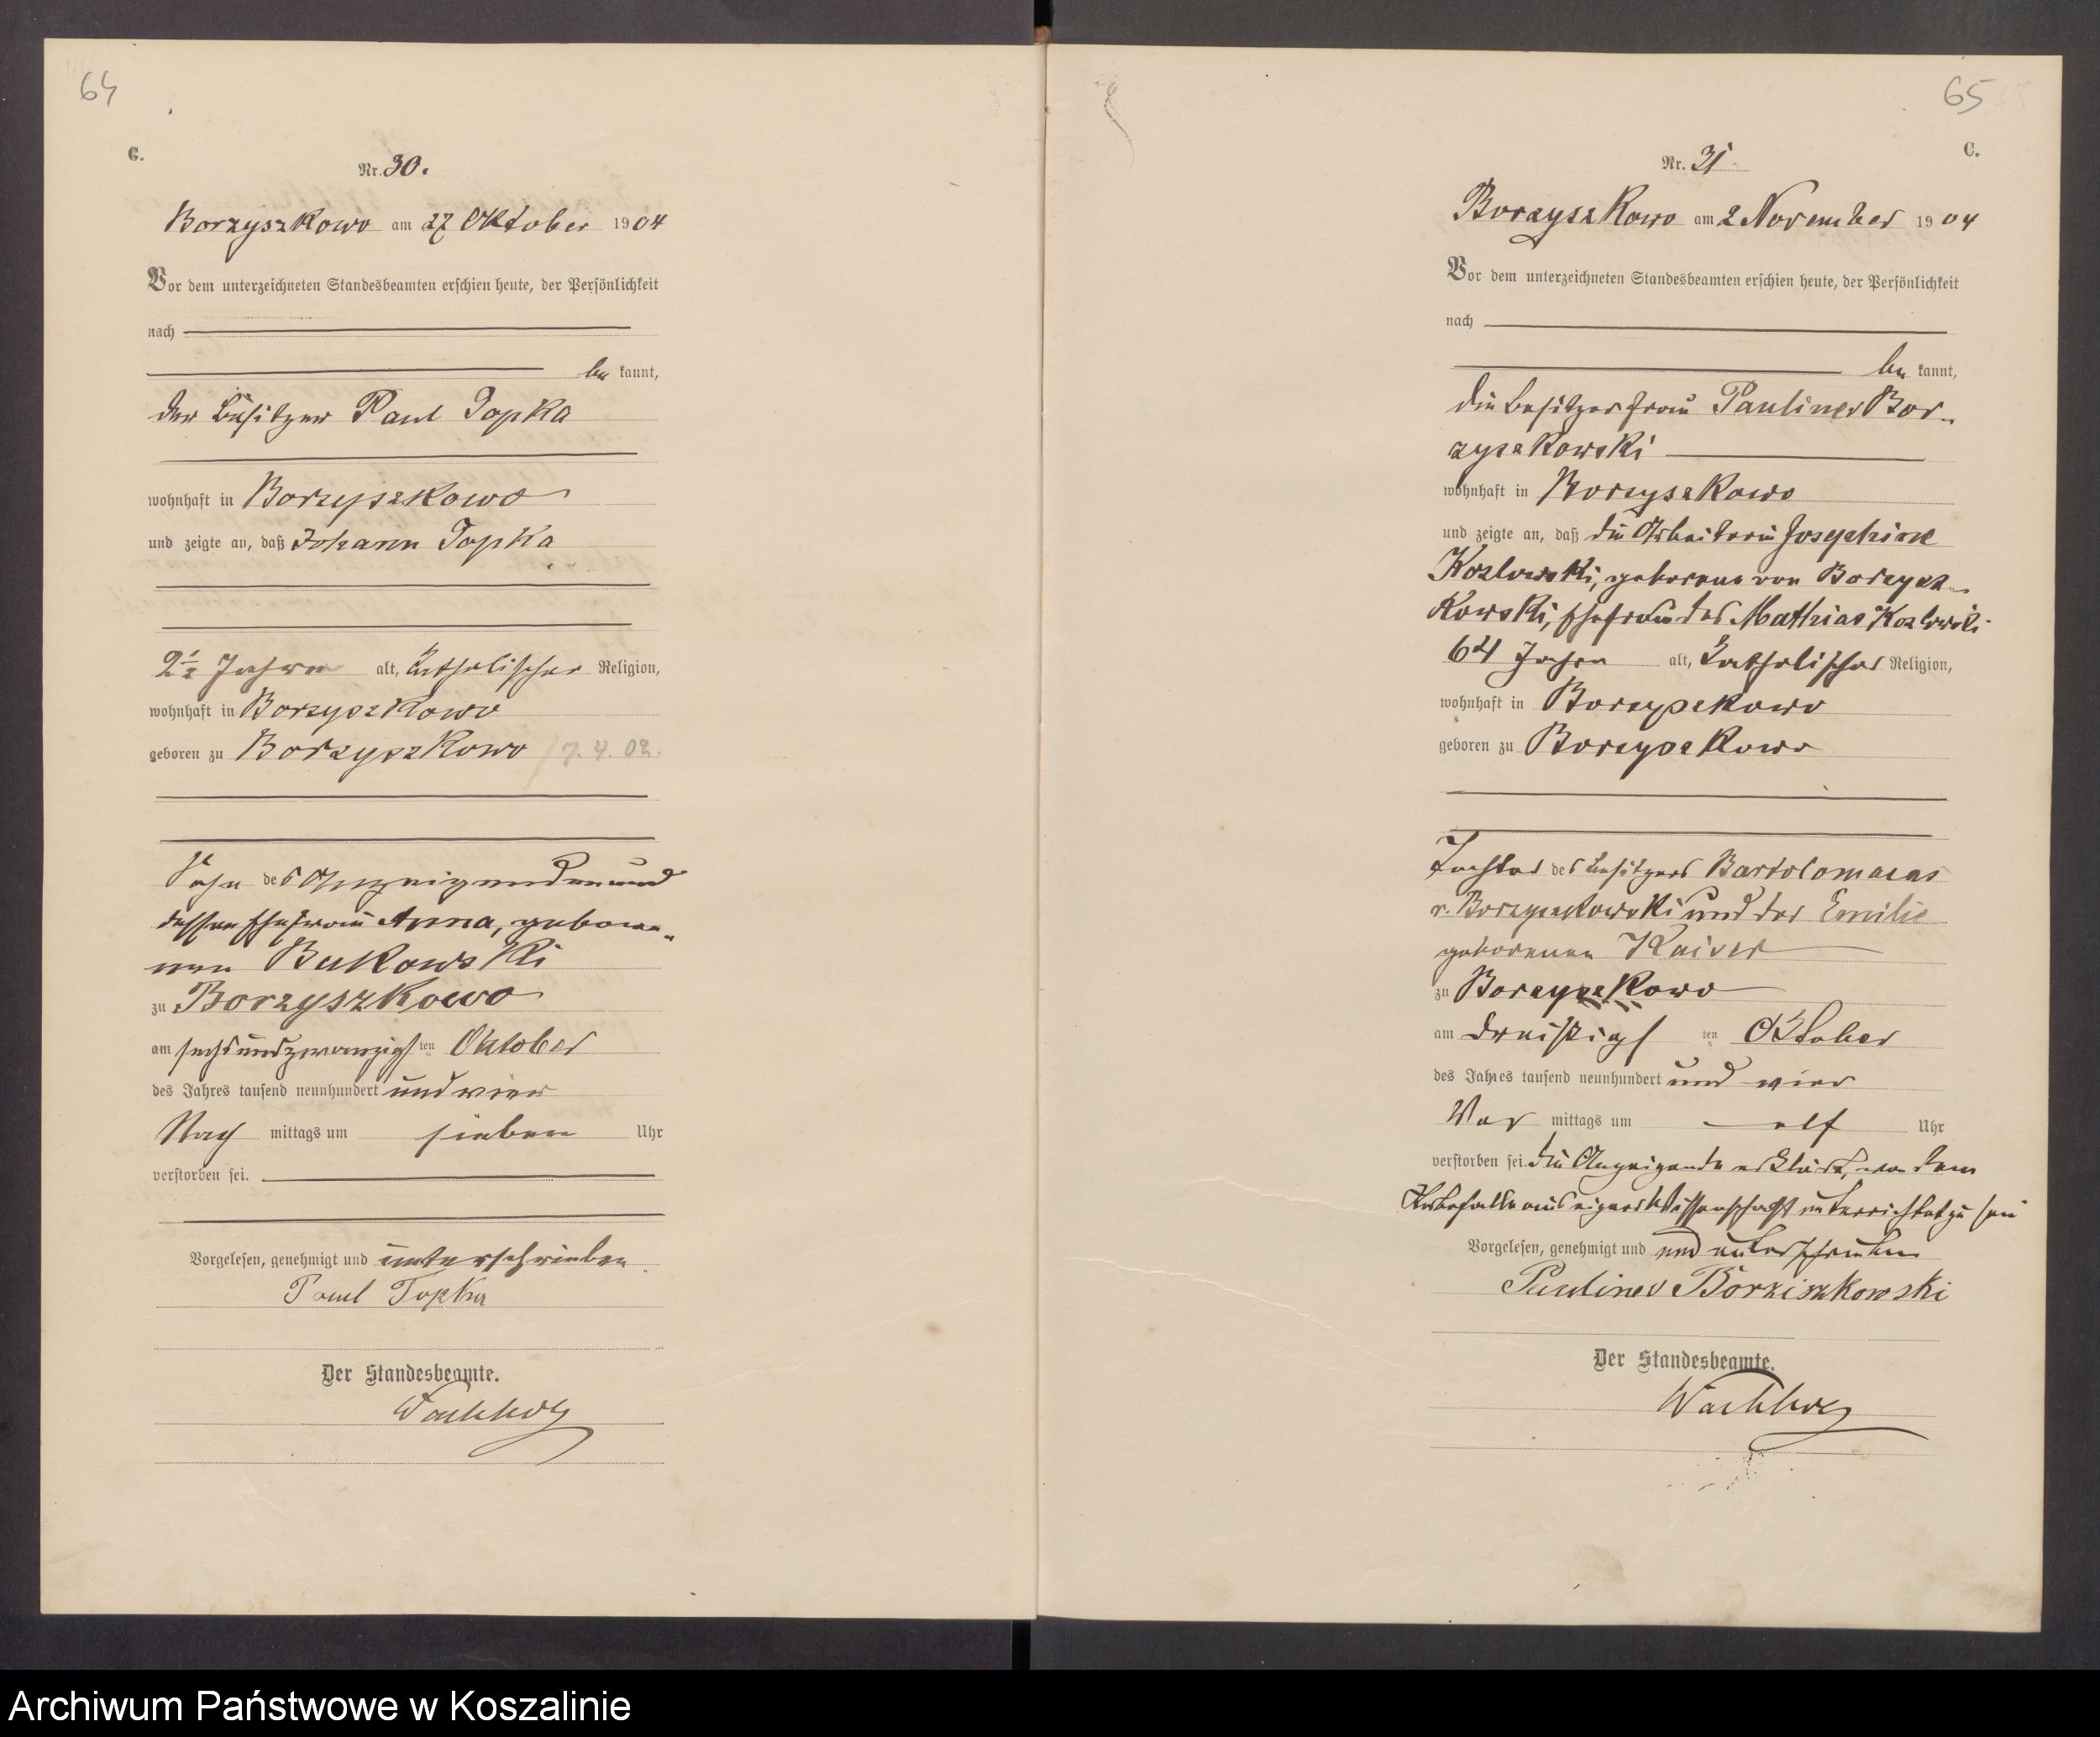 64
C.
Nr. 30.
Borzyszkowo am 27 Oktober 1904
Vor dem unterzeichneten Standesbeamten erschien heute, der Persönlichkeit
nach
be kannt,
der Besitzer Paul Topka
wohnhaft in Borzyszkowo
und zeigte an, daß Johann Topka
2½ Jahre alt, katholischer Religion,
wohnhaft in Borzyszkowo
geboren zu Borzyszkowo / 7.4.02.
Sohn des Anzeigenden und
dessen Ehefrau Anna, gebore-
nen Bukowski
zu Borzyszkowo
am sechsundzwanzigsten Oktober
des Jahres tausend neunhundert und vier
Nach mittags um sieben Uhr
verstorben sei.
Vorgelesen, genehmigt und unterschrieben
Paul Topka
Der Standesbeamte.
Wachholz
65
C.
Nr. 31
Borzyszkowo am 2 November 1904
Vor dem unterzeichneten Standesbeamten erschien heute, der Persönlichkeit
nach
be kannt,
die Besitzerfrau Pauline v Bor-
zyszkowski
wohnhaft in Borzyszkowo
und zeigte an, daß die Arbeiterin Josephine
Kozlowski, geborene von Borzysz-
kowski, Ehefrau des Mathias Kozlowski
64 Jahre alt, katholischer Religion,
wohnhaft in Borzyszkowo
geboren zu Borzyszkowo
Tochter des Besitzers Bartolomaeus
v. Borzyszkowski und der Emilie
geborenen Kaiser
zu Borzyszkowo
am dreißigsten Oktober
des Jahres tausend neunhundert und vier
Vor mittags um elf Uhr
verstorben sei. Die Anzeigende erklärt, von dem
Sterbefalle aus eigener Wissenschaft unterrichtet zu sein
Vorgelesen, genehmigt und und unterschrieben
Pauline v Borziszkowski
Der Standesbeamte.
Wachholz
Archiwum Państwowe w Koszalinie